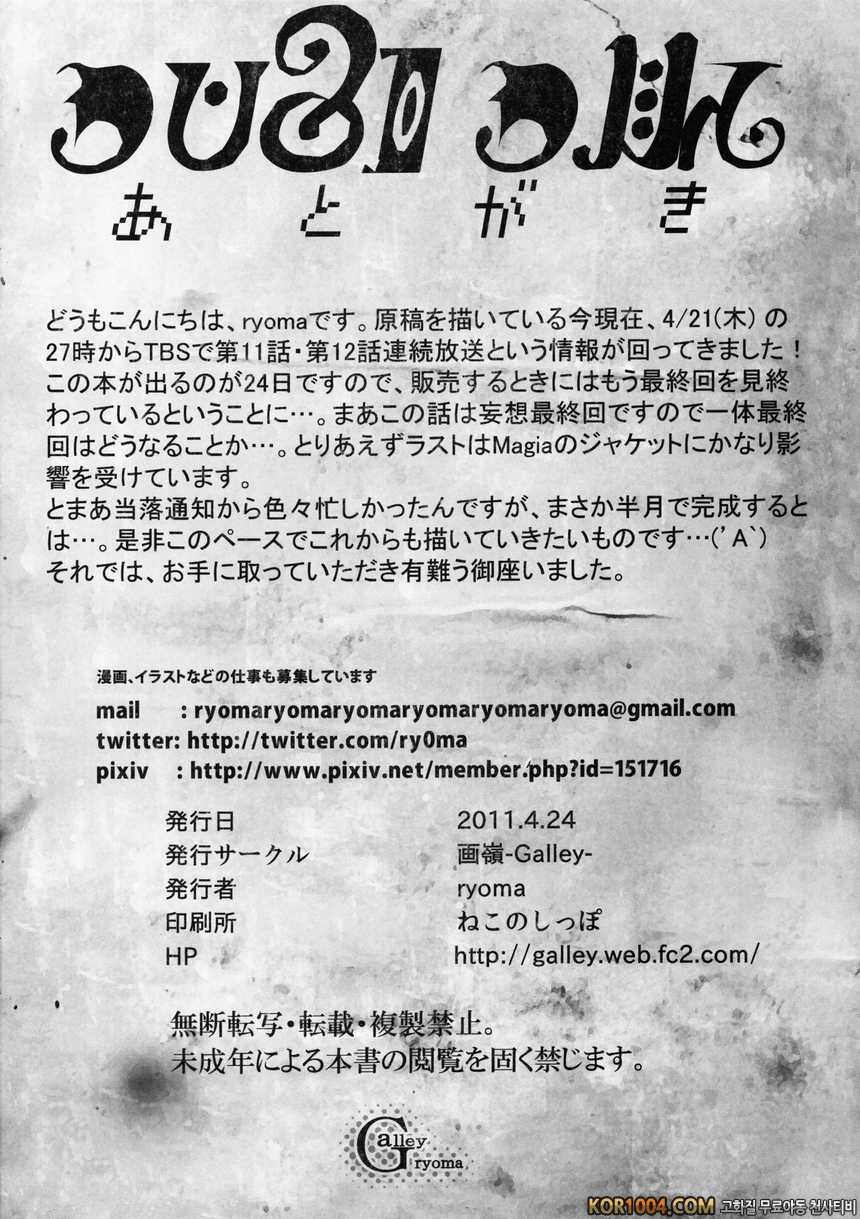 あとがき
どうもこんにちは、ryomaです。原稿を描いている今現在、4/21(木) の
27時からTBSで第11話・第12話連続放送という情報が回ってきました！
この本が出るのが24日ですので、販売するときにはもう最終回を見終
わっているということに…。まあこの話は妄想最終回ですので一体最終
回はどうなることか…。とりあえずラストはMagiaのジャケットにかなり影
響を受けています。
とまあ当落通知から色々忙しかったんですが、まさか半月で完成すると
は…。是非このペースでこれからも描いていきたいものです…('A`)
それでは、お手に取っていただき有難う御座いました。
漫画、イラストなどの仕事も募集しています
mail : ryomaryomaryomaryomaryomaryoma@gmail.com
twitter: http://twitter.com/ry0ma
pixiv : http://www.pixiv.net/member.php?id=151716
発行日 2011.4.24
発行サークル 画嶺-Galley-
発行者 ryoma
印刷所 ねこのしっぽ
HP http://galley.web.fc2.com/
無断転写・転載・複製禁止。
未成年による本書の閲覧を固く禁じます。
Galley
ryoma
KOR1004.COM 고화질 무료야동 천사티비